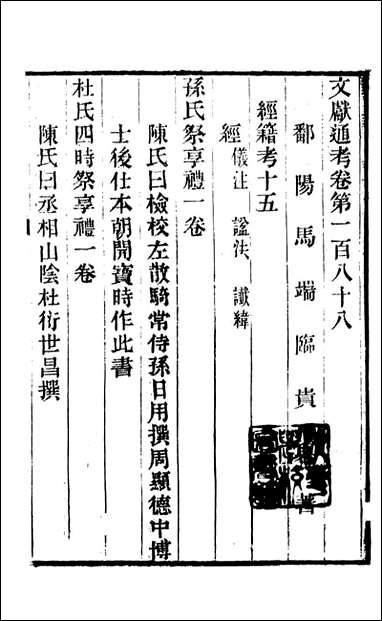 文獻通考卷第一百八十八
鄱陽馬端臨貴
經籍考十五
經儀注 諡法 讖緯
孫氏祭享禮一卷
陳氏曰檢校左散騎常侍孫日用撰周顯德中博
士後仕本朝開寶時作此書
杜氏四時祭享禮一卷
陳氏曰丞相山陰杜衍世昌撰